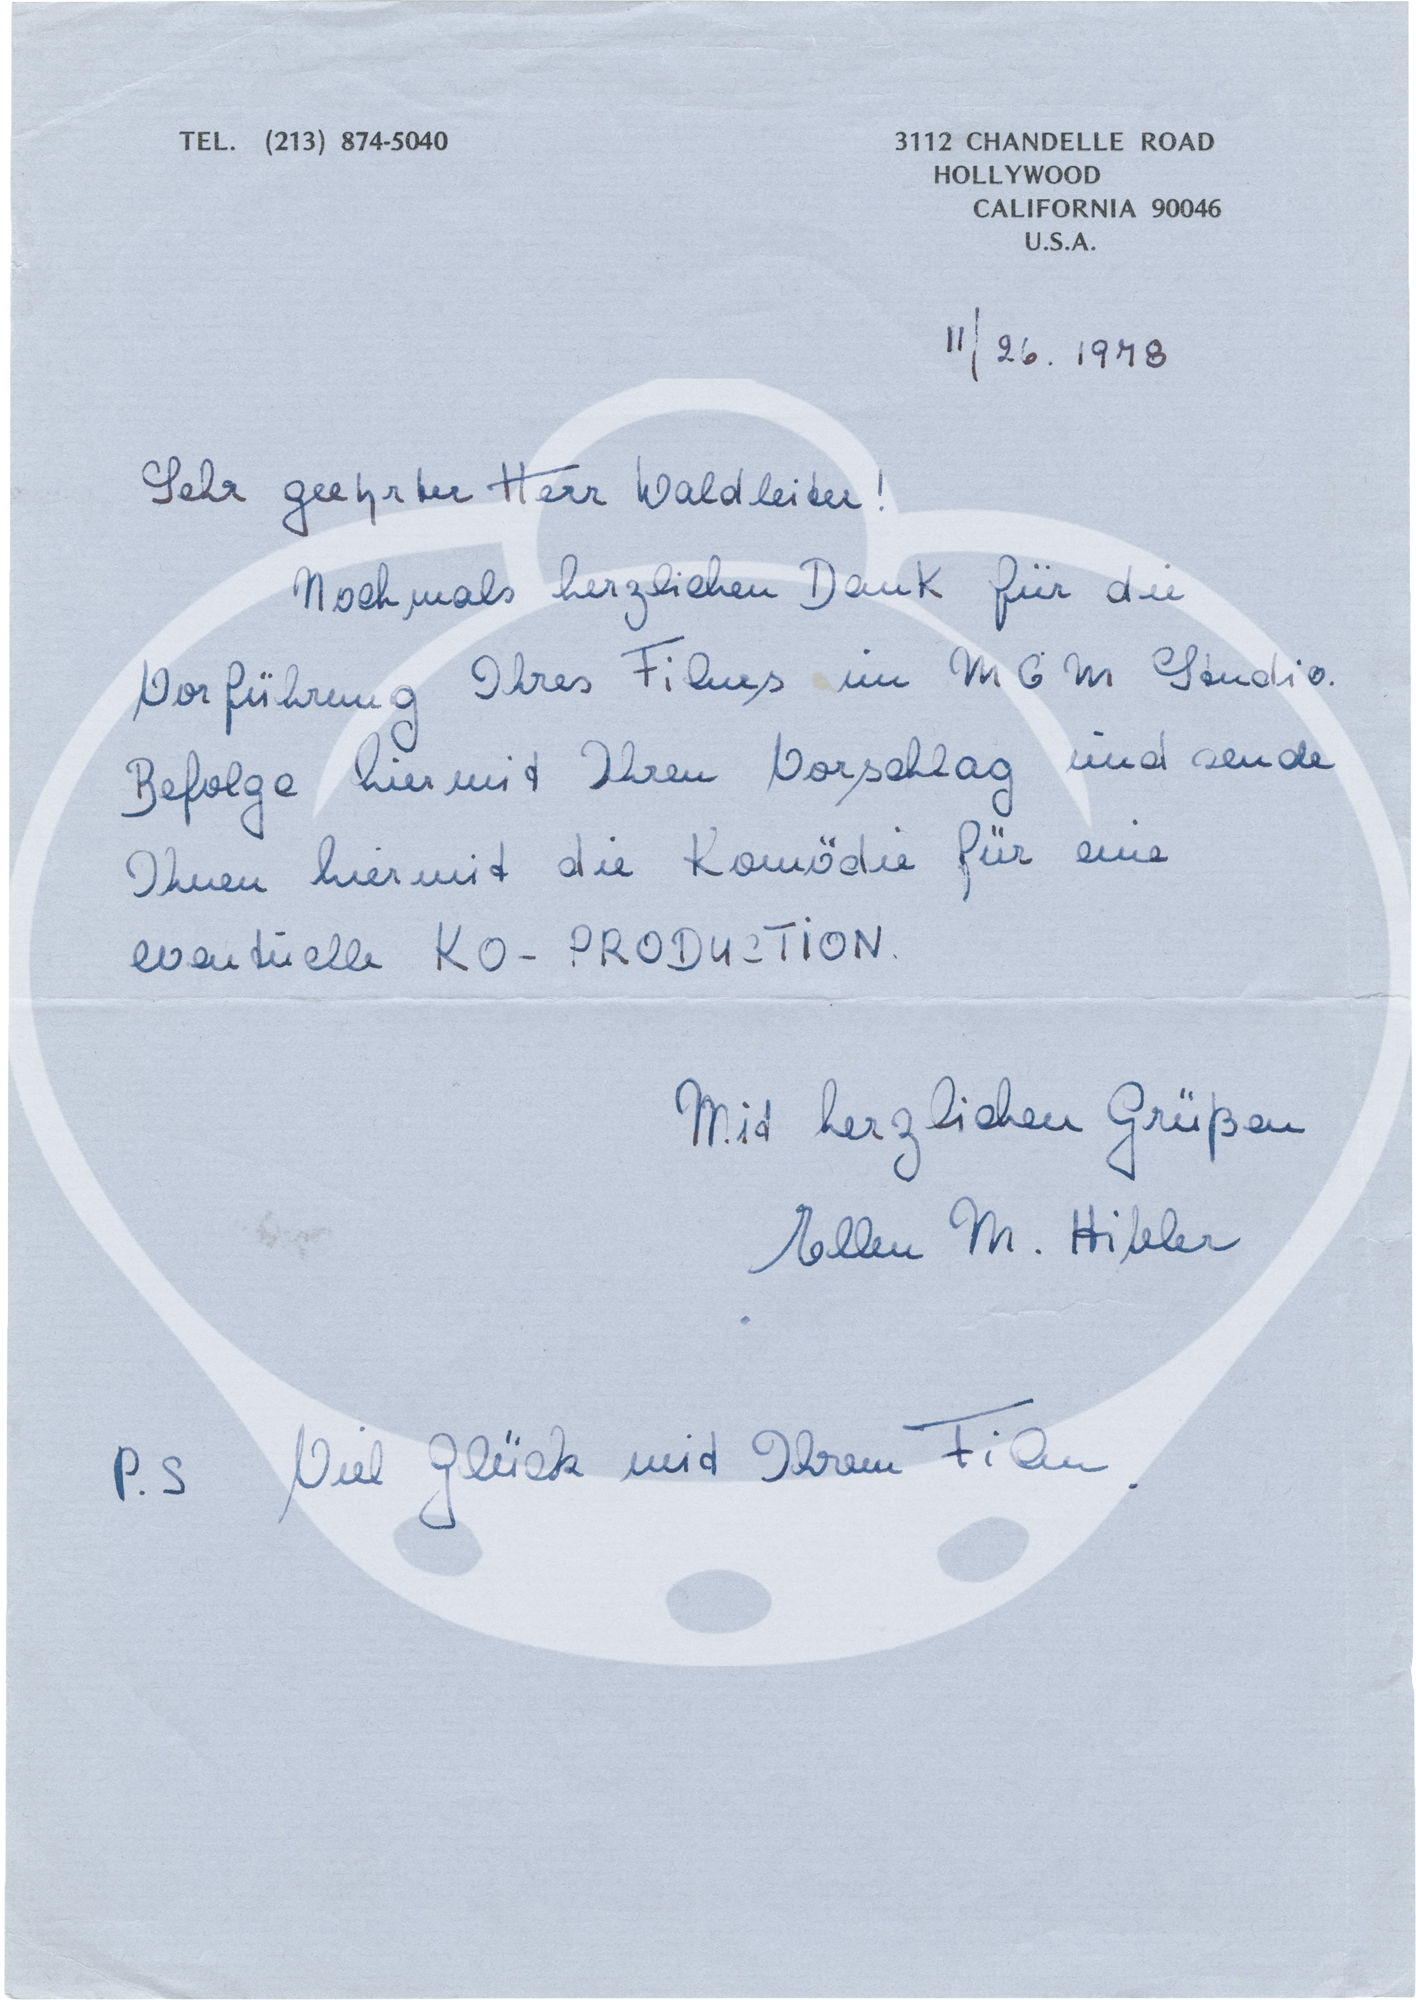 TEL. (213) 874-5040
3112 CHANDELLE ROAD
HOLLYWOOD
CALIFORNIA 90046
U.S.A.
11/26. 1978
Sehr geehrter Herr Waldleiter!
Nochmals herzlichen Dank für die
Vorführung Ihres Filmes im MGM Studio.
Befolge hiermit Ihren Vorschlag und sende
Ihnen hiermit die Komödie für eine
eventuelle KO-PRODUCTION.
Mit herzlichen Grüßen
Ellen M.
P.S Viel Glück mit Ihrem Film.